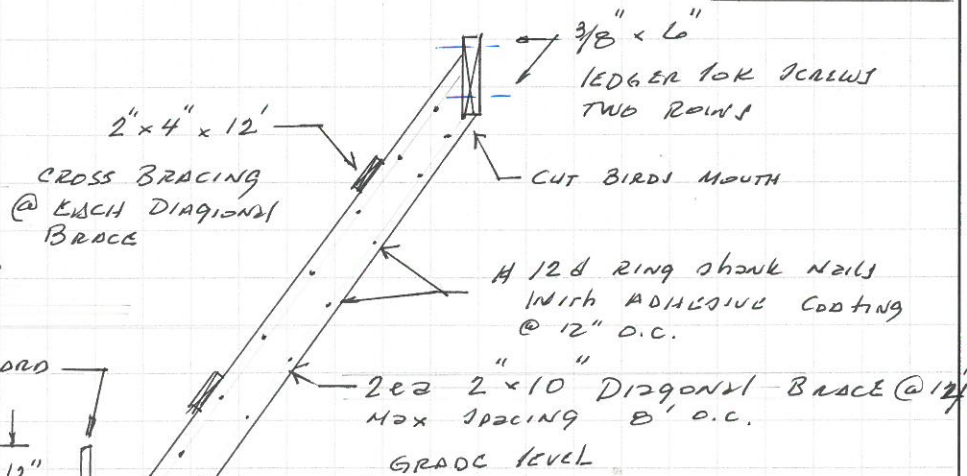 3/8" x 6"
LEDGER LOK SCREWS
TWO ROWS
2" x 4" x 12'
CROSS BRACING
@ EACH DIAGIONAL
BRACE
CUT BIRDS MOUTH
# 12d RING shank Nails
With ADHESIVE COATING
@ 12" O.C.
2 ea 2" x 10" DIAGONAL BRACE @ 12'
MAX SPACING 8' O.C.
GRADE LEVEL
12"